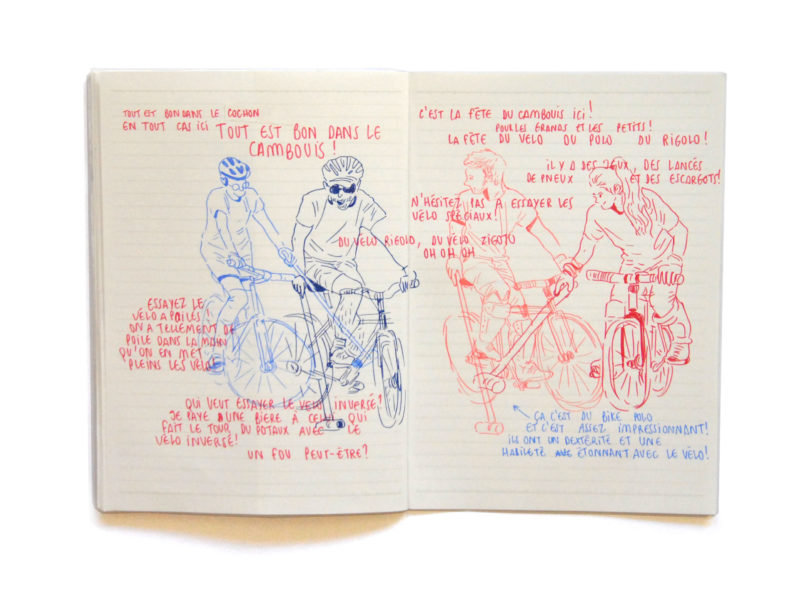 TOUT EST BON DANS LE COCHON
EN TOUT CAS ICI TOUT EST BON DANS LE
CAMBOUIS !
ESSAYEZ LE
VÉLO A POILES !
ON A TELLEMENT DE
POILE DANS LA MAIN
QU'ON EN MET
PLEINS LES VÉLOS
QUI VEUT ESSAYER LE VELO INVERSÉ?
JE PAYE UNE BIÈRE À CELUI QUI
FAIT LE TOUR DU POTAUX AVEC LE
VÉLO INVERSÉ!
UN FOU PEUT-ÊTRE?
C'EST LA FÊTE DU CAMBOUIS ICI !
POUR LES GRANDS ET LES PETITS !
LA FÊTE DU VELO DU POLO DU RIGOLO !
IL Y A DES JEUX, DES LANCÉS
DE PNEUX ET DES ESCARGOTS!
N'HÉSITEZ PAS A ESSAYER LES
VÉLO SPÉCIAUX!
DU VELO RIGOLO, DU VÉLO ZIGOTO
OH OH OH
ÇA C'EST DU BIKE POLO
ET C'EST ASSEZ IMPRESSIONNANT!
ILS ONT UN DEXTÉRITÉ ET UNE
HABILETÉ ÉTONNANT AVEC LE VÉLO!